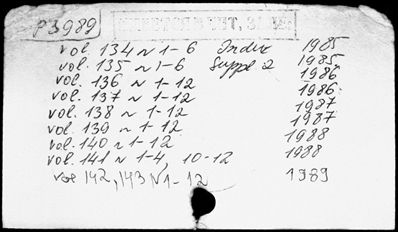 P3989
vol. 134 N 1-6 Index 1985
vol. 135 N 1-6 Suppl 2 1985
vol. 136 N 1-12 1986
vol. 137 N 1-12 1986
vol. 138 N 1-12 1987
vol. 139 N 1-12 1987
vol. 140 N 1-12 1988
vol. 141 N 1-4, 10-12 1988
vol 142, 143 N 1-12 1989